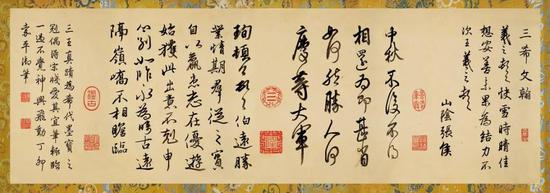 三希文翰
羲之頓首快雪時晴佳
想安善未果為結力不
次王羲之頓首
山陰張侯
中秋不復不得
相還為即甚省
如何然勝人何
慶等大軍
珣頓首頓首伯遠勝
業情期群從之寶
自以羸患志在優遊
始獲此出意不剋申
分別如昨永為疇古遠
隔嶺嶠不相瞻臨
三王真蹟為希代墨寶之
冠偶得宋牋愛其宜筆輒
一過不覺神興飛動丁卯
嘉平御筆